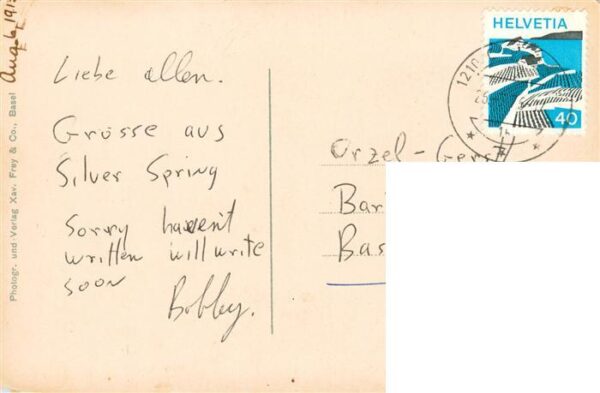 Liebe allen.
Grüsse aus
Silver Spring
Sorry havent
written will write
soon
Bobby.
Photogr. und Verlag Xav. Frey & Co., Basel
HELVETIA
40
1210
Orzel-Gerst
Bar
Bas